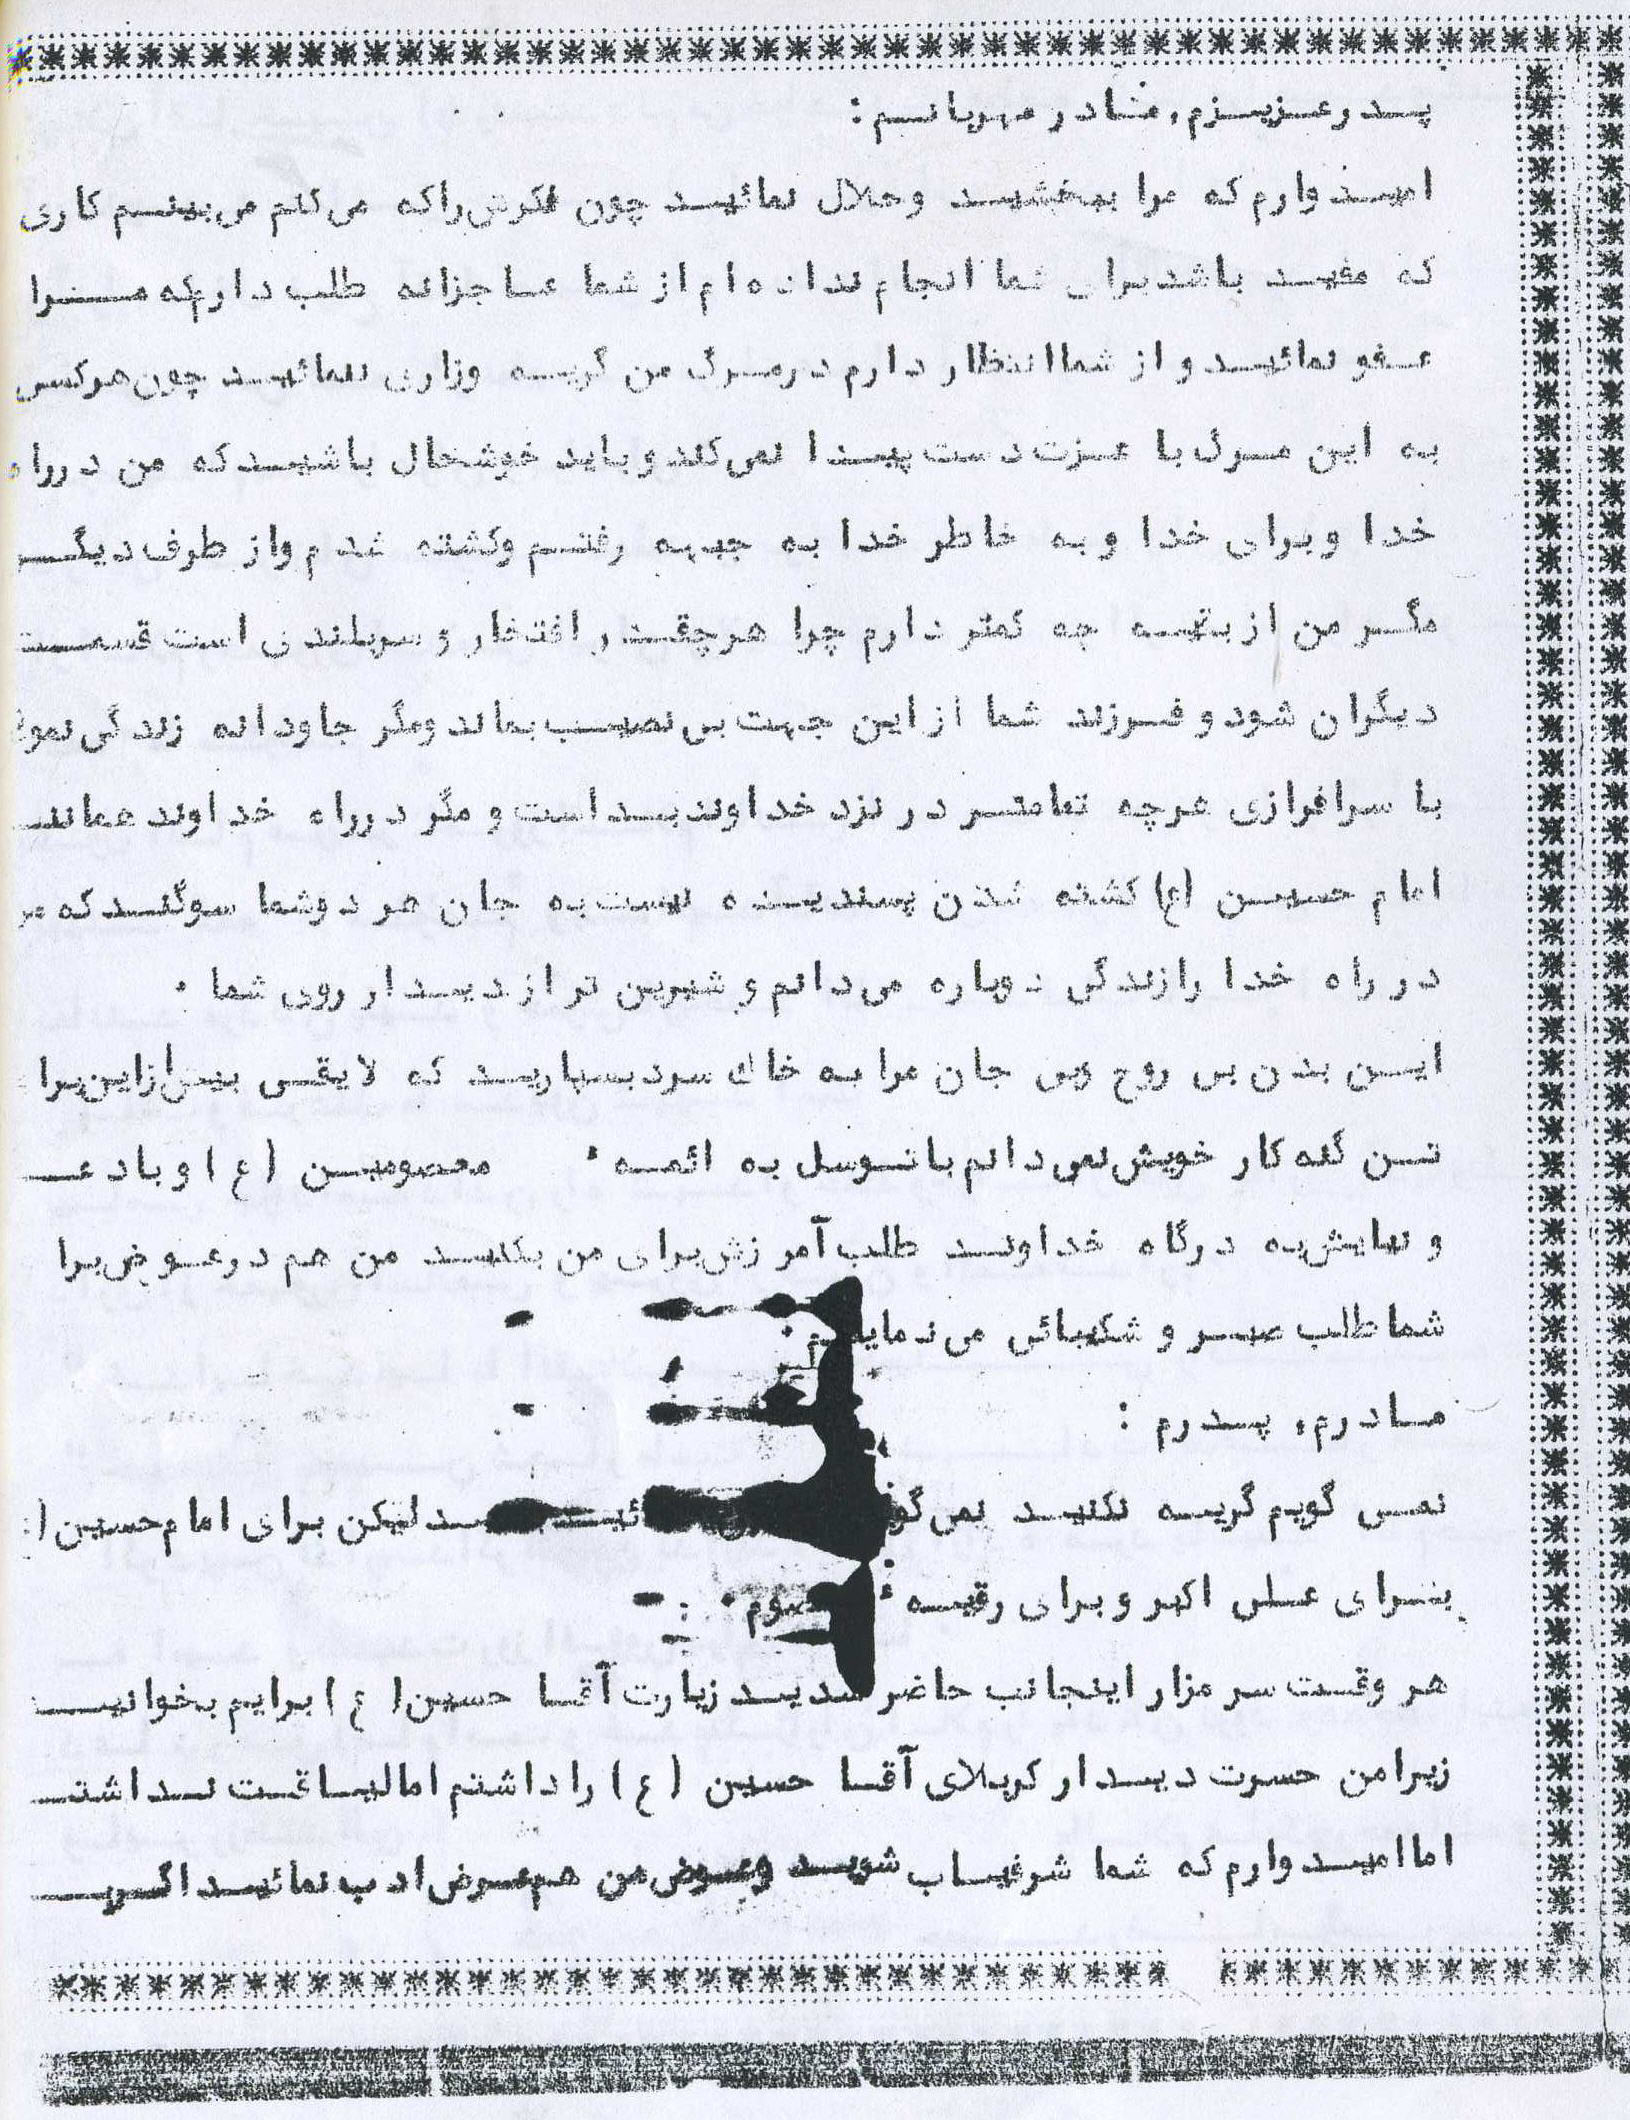 پدر عزیزم، مادر مهربانم:
امیدوارم که مرا ببخشید وحلال نمائید چون فکرش راکه می کنم می بینم کاری
که مفید باشد برای شما انجام نداده ام از شما عاجزانه طلب دارم که مرا
عفو نمائید و از شما انتظار دارم درمرگ من گریه وزاری ننمائید چون هرکس
به این مرگ با عزت دست پیدا نمی کند و باید خوشحال باشید که من درراه
خدا وبرای خدا و به خاطر خدا به جبهه رفتم وکشته شدم واز طرف دیگـر
مگر من از بقیه چه کمتر دارم چرا هرچقدر افتخار و سربلندی است قسمت
دیگران شود و فرزند شما از این جهت بی نصیب بماند ومگر جاودانه زندگی
با سرافرازی هرچه تمامتر در نزد خداوند بد است و مگر درراه خداوند همانند
امام حسین (ع) کشته شدن پسندیده نیست به جان هر دوشما سوگند که
در راه خدا را زندگی دوباره می دانم و شیرین تر از دیدار روی شما .
این بدن بی روح وبی جان مرا به خاک سرد بسپارید که لایقی بیش از این برا
تن گنه کار خویش نمی دانم با توسل به ائمه ٔ معصومین (ع) و با
و نیایش به درگاه خداوند طلب آمرزش برای من بکنید من هم درعوض برا
شما طلب صبر و شکیبائی می نمایم .
مادرم، پدرم :
نمی گویم گریه نکنید نمی لیکن برای امام حسین (
برای علی اکبر و برای رقیه ٔ
هر وقت سر مزار اینجانب حاضر شدید زیارت آقا حسین (ع) برایم بخوانید
زیرا من حسرت دیدار کربلای آقا حسین (ع) را داشتم اما لیاقت نداشتم
اما امیدوارم که شما شرفیاب شوید وعوض من هم عرض ادب نمائید